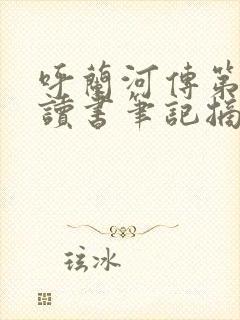 呼蘭河傳第
讀書筆記摘
玹冰